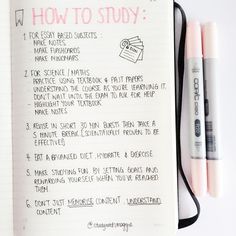 HOW TO STUDY:
1. FOR ESSAY BASED SUBJECTS:
MAKE NOTES,
MAKE FLASHCARDS
MAKE MINDMAPS
2. FOR SCIENCE / MATHS:
PRACTICE USING TEXTBOOK & PAST PAPERS
UNDERSTAND THE COURSE AS YOU'RE LEARNING IT,
DON'T WAIT UNTIL THE EXAM TO ASK FOR HELP
- HIGHLIGHT YOUR TEXTBOOK
MAKE NOTES
3. REVISE IN SHORT 30 MIN BURSTS THEN TAKE A
5 MINUTE BREAK (SCIENTIFICALLY PROVEN TO BE
EFFECTIVE)
4. EAT A BALANCED DIET, HYDRATE & EXERCISE
5. MAKE STUDYING FUN BY SETTING GOALS AND
REWARDING YOURSELF WHEN YOU'VE REACHED
THEM
6. DON'T JUST MEMORISE CONTENT, UNDERSTAND
CONTENT
@studywithmaggie
COPIC ciao